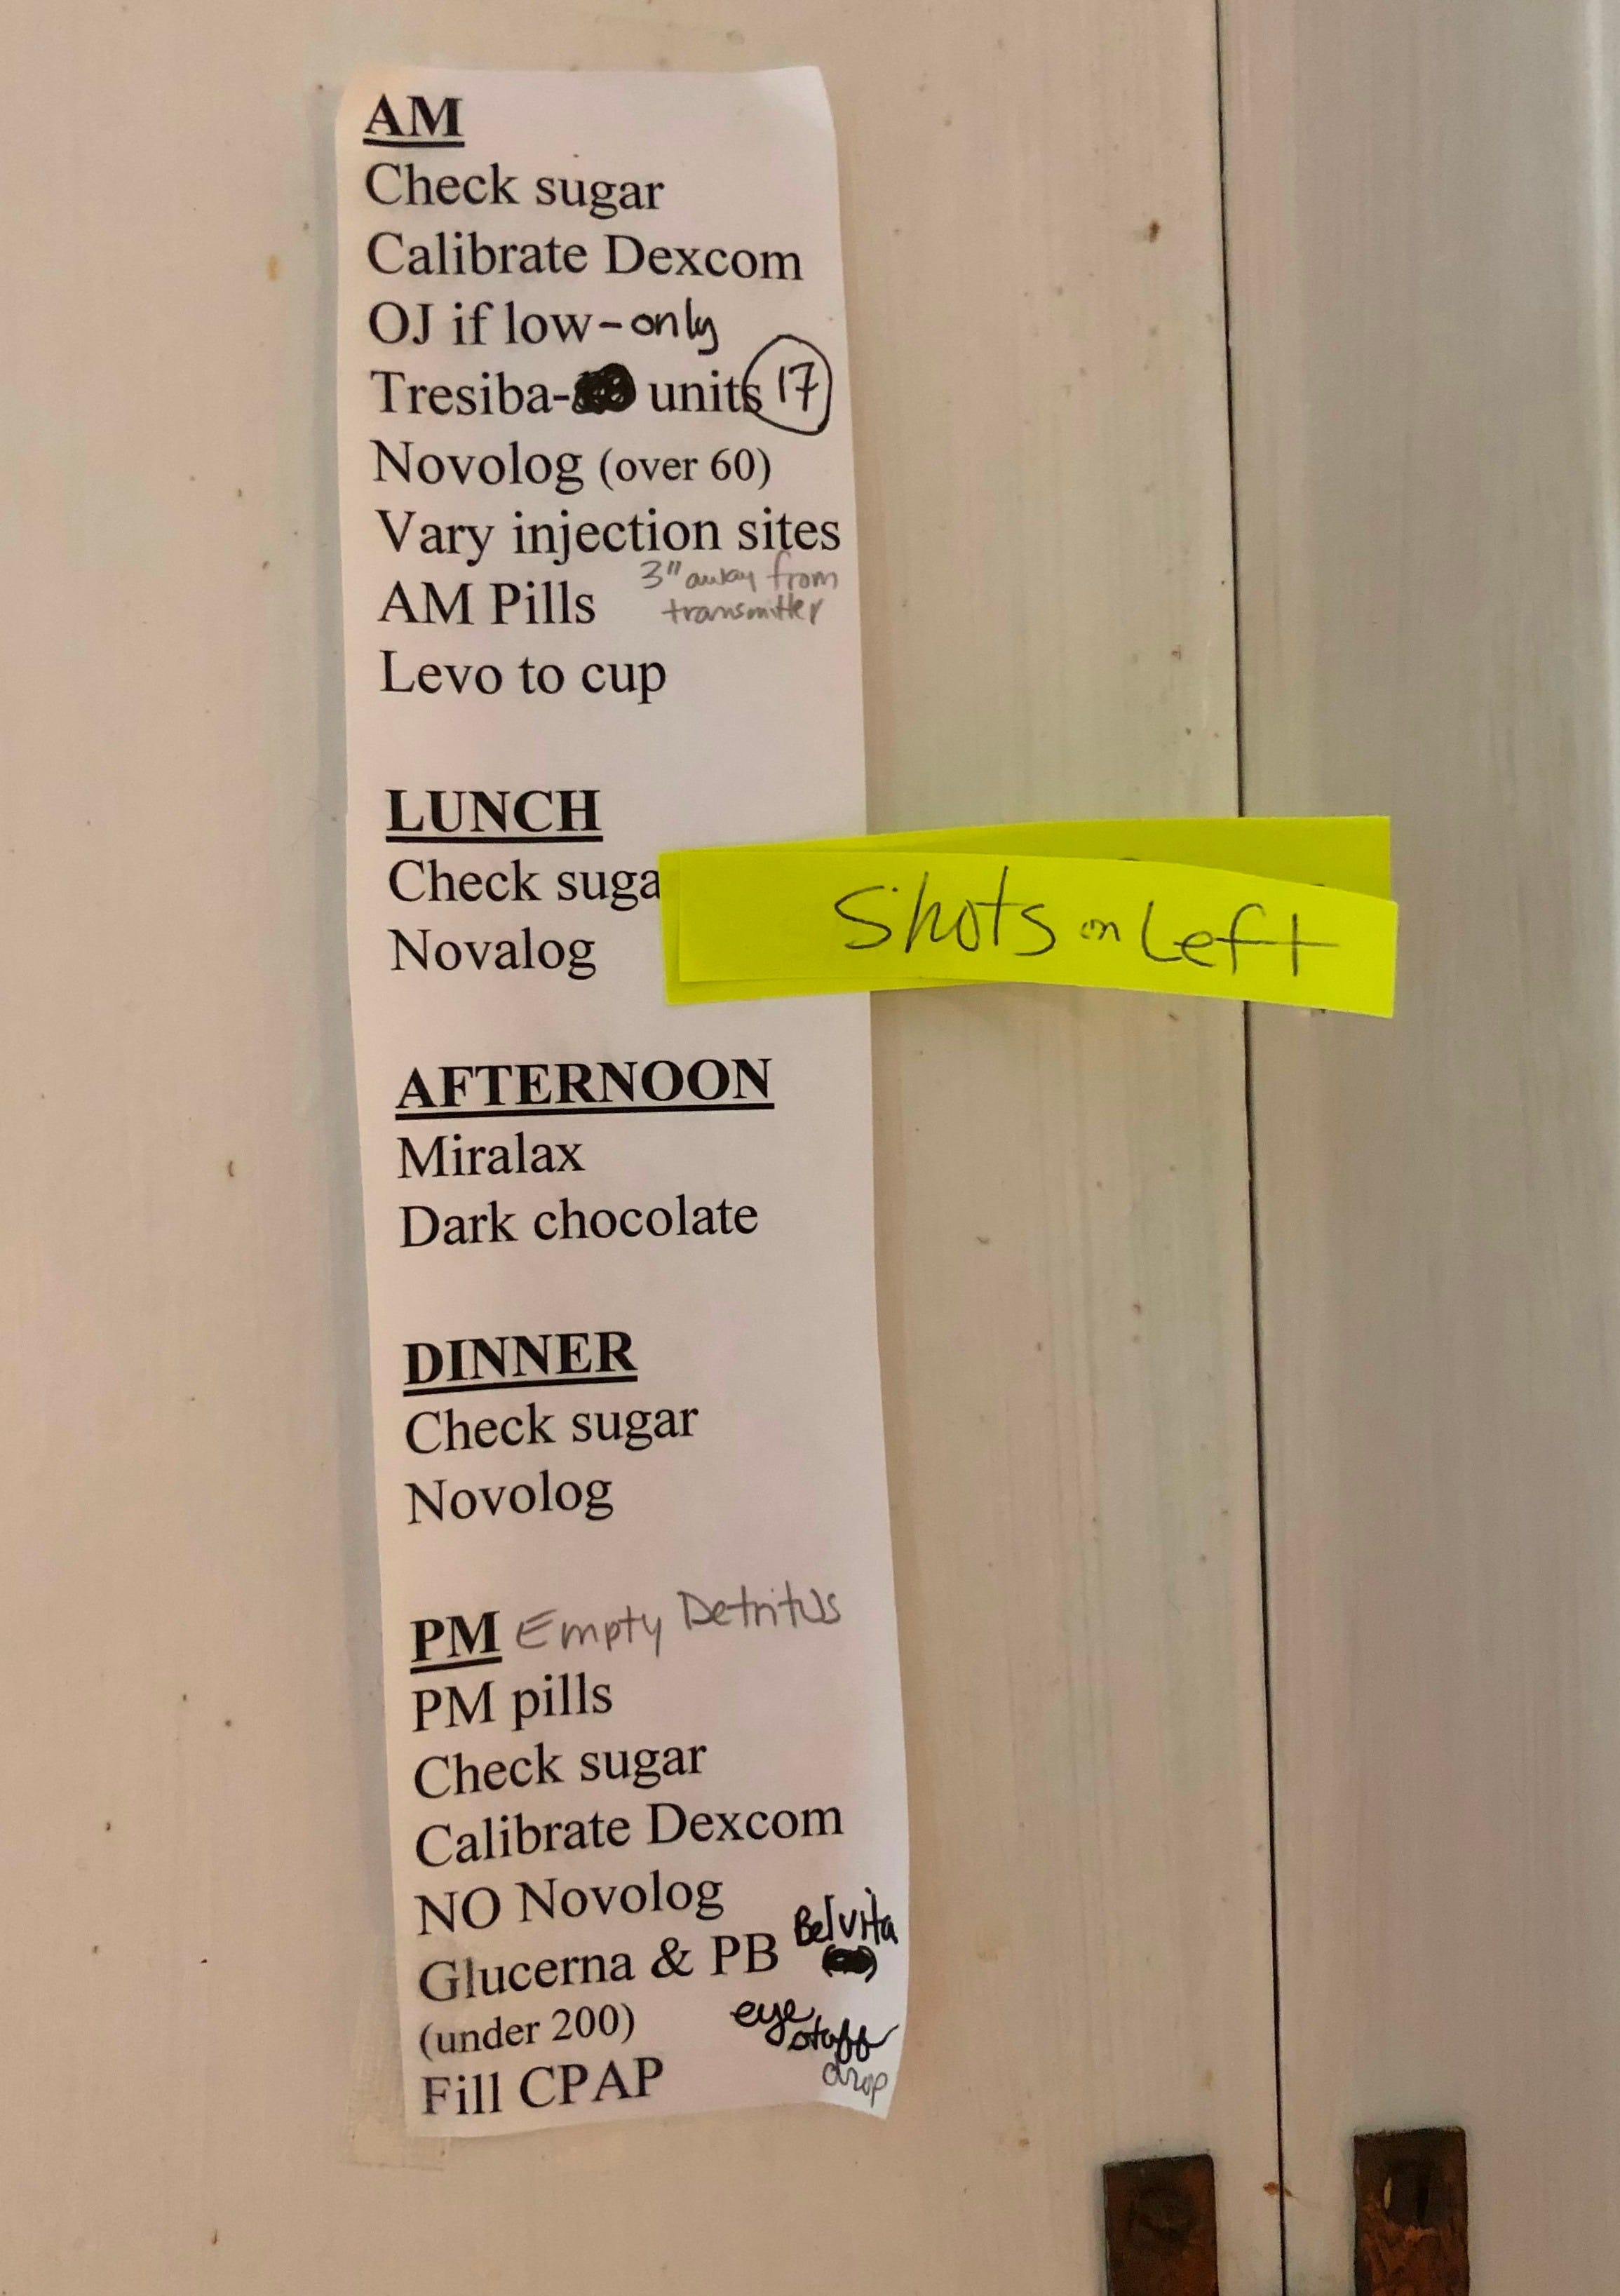 AM
Check sugar
Calibrate Dexcom
OJ if low-only
Tresiba- units 17
Novolog (over 60)
Vary injection sites
3" away from
transmitter
AM Pills
Levo to cup
LUNCH
Check suga
Novalog
Shots on Left
AFTERNOON
Miralax
Dark chocolate
DINNER
Check sugar
Novolog
PM Empty Detritus
PM pills
Check sugar
Calibrate Dexcom
NO Novolog
Glucerna & PB Belvita
(under 200)
eye
stuff
drop
Fill CPAP